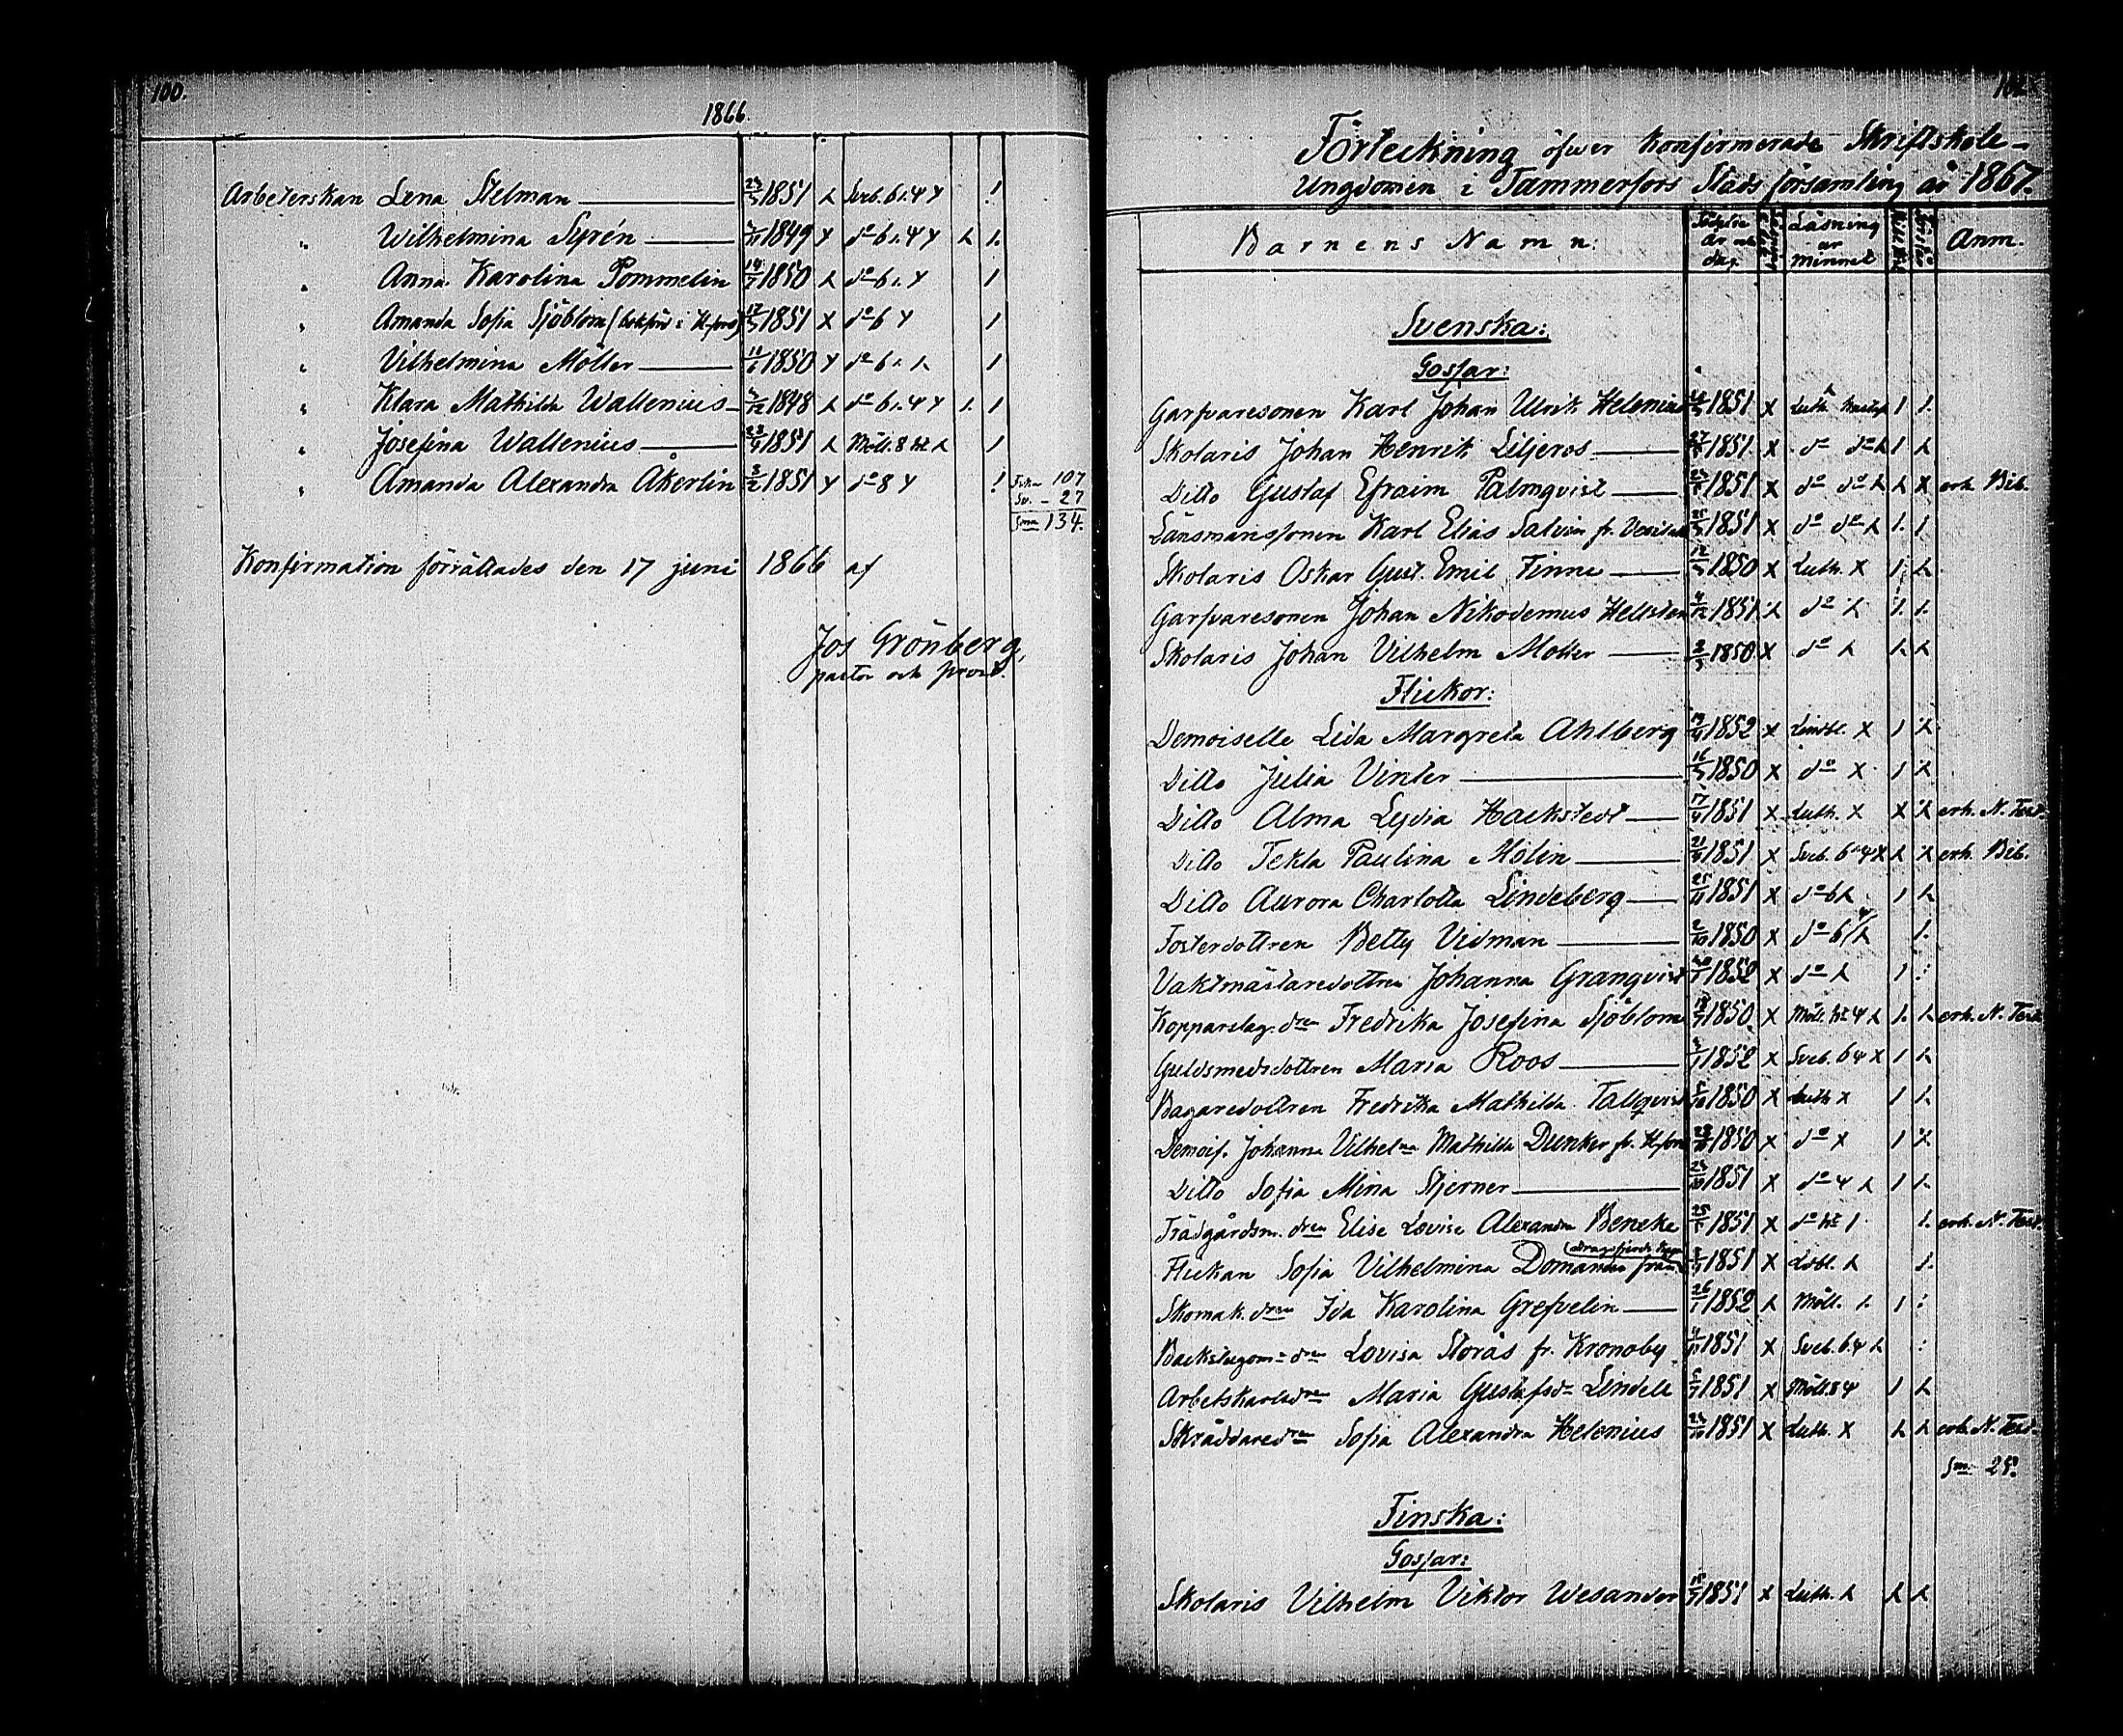 100.
1866.
Arbeterskan Lena Stelman 1851 Sveb. 6 1. 4 y 1
" Wilhelmina Syrén 1849 y do 6 1. 4 y 1.
" Anna Karolina Pommelin 14/7 1850 do 6 1. y 1
" Amanda Sofia Sjöblom (bokförd i H.fors) 17/5 1851 x do 6 y 1
" Vilhelmina Möller 11/6 1850 y do 6 1
" Klara Mathilda Wallenius 1848 do 6 1. 4 y 1. 1
" Josefina Wallenius 1851 Möll. 8 1
" Amanda Alexandra Åkerlin 3/2 1851 y do 8 y 1
Finska 107
Sv. - 27
Sma 134.
Konfirmation förrättades den 17 juni 1866 af
Jos Grönberg,
pastor och prost.
Förteckning öfwer Konfirmerade Skriftskole-
Ungdomen i Tammerfors Stads församling år 1867.
Barnens Namn: Födelse år och dag. Läsning ur minnet Anm.
Svenska:
Gossar:
Garfvaresonen Karl Johan Ulrik Helenius 1851 x Luth. 1 1.
Skolaris Johan Henrik Liljeros 1851 x do do 1
Ditto Gustaf Efraim Palmqvist 1851 x do do x erh. Bib.
Länsmanssonen Karl Elias Salvin fr. 1851 x do do 1. 1
Skolaris Oskar Gust. Emil Finne 12/5 1850 x Luth. x 1
Garfvaresonen Johan Nikodemus Hellsten 4/12 1851 do 1. 1.
Skolaris Johan Vilhelm Moller 1850 x do
Flickor:
Demoiselle Lida Margreta Ahlberg 1852 x Lindbl. x 1
Ditto Julia Vinter 16/5 1850 x do x 1
Ditto Alma Lydia Hackstedt 1851 x Luth. x x erh. N. Test.
Ditto Tekla Paulina Molin 1851 x Sveb. 6 4 x erh. Bib.
Ditto Aurora Charlotta Lindeberg 25/11 1851 x do 6 1
Fosterdottren Betty Vidman 2/10 1850 x do 6 1.
Vaktmästaredottren Johanna Granqvist 1852 x do 1
Kopparslag. dren Fredrika Josefina Sjöblom 18/7 1850 x Möll. 4 1. erh. N. Test.
Guldsmedsdottren Maria Roos 1852 x Sveb. 6 4 x 1
Bagaredottren Fredrika Mathilda Tallqvist 1850 x Luth. x 1
Demois. Johanna Vilhelna Mathilda Dunker fr. H.fors 1850 x do x 1
Ditto Sofia Mina Stjerner 1851 x do 4 1
Trädgårdsm. dren Elise Lovise Alexandra Beneke 1851 x do 1 1. erh. N. Test.
Flickan Sofia Vilhelmina Domander från 1851 x Ldbl. 1.
Skomak. dren Ida Karolina Grefvelin 26/1 1852 Möll. 1
Backstugom. dren Lovisa Storås fr. Kronoby 1851 x Sveb. 6 4
Arbetskarlsdren Maria Gustafsdr Lindell 1851 x Möll. 8 4 1
Skräddaredren Sofia Alexandra Helenius 1851 x Luth. x erh. N. Test.
Sma 25.
Finska:
Gossar:
Skolaris Vilhelm Viktor Wesander 1851 x Luth.